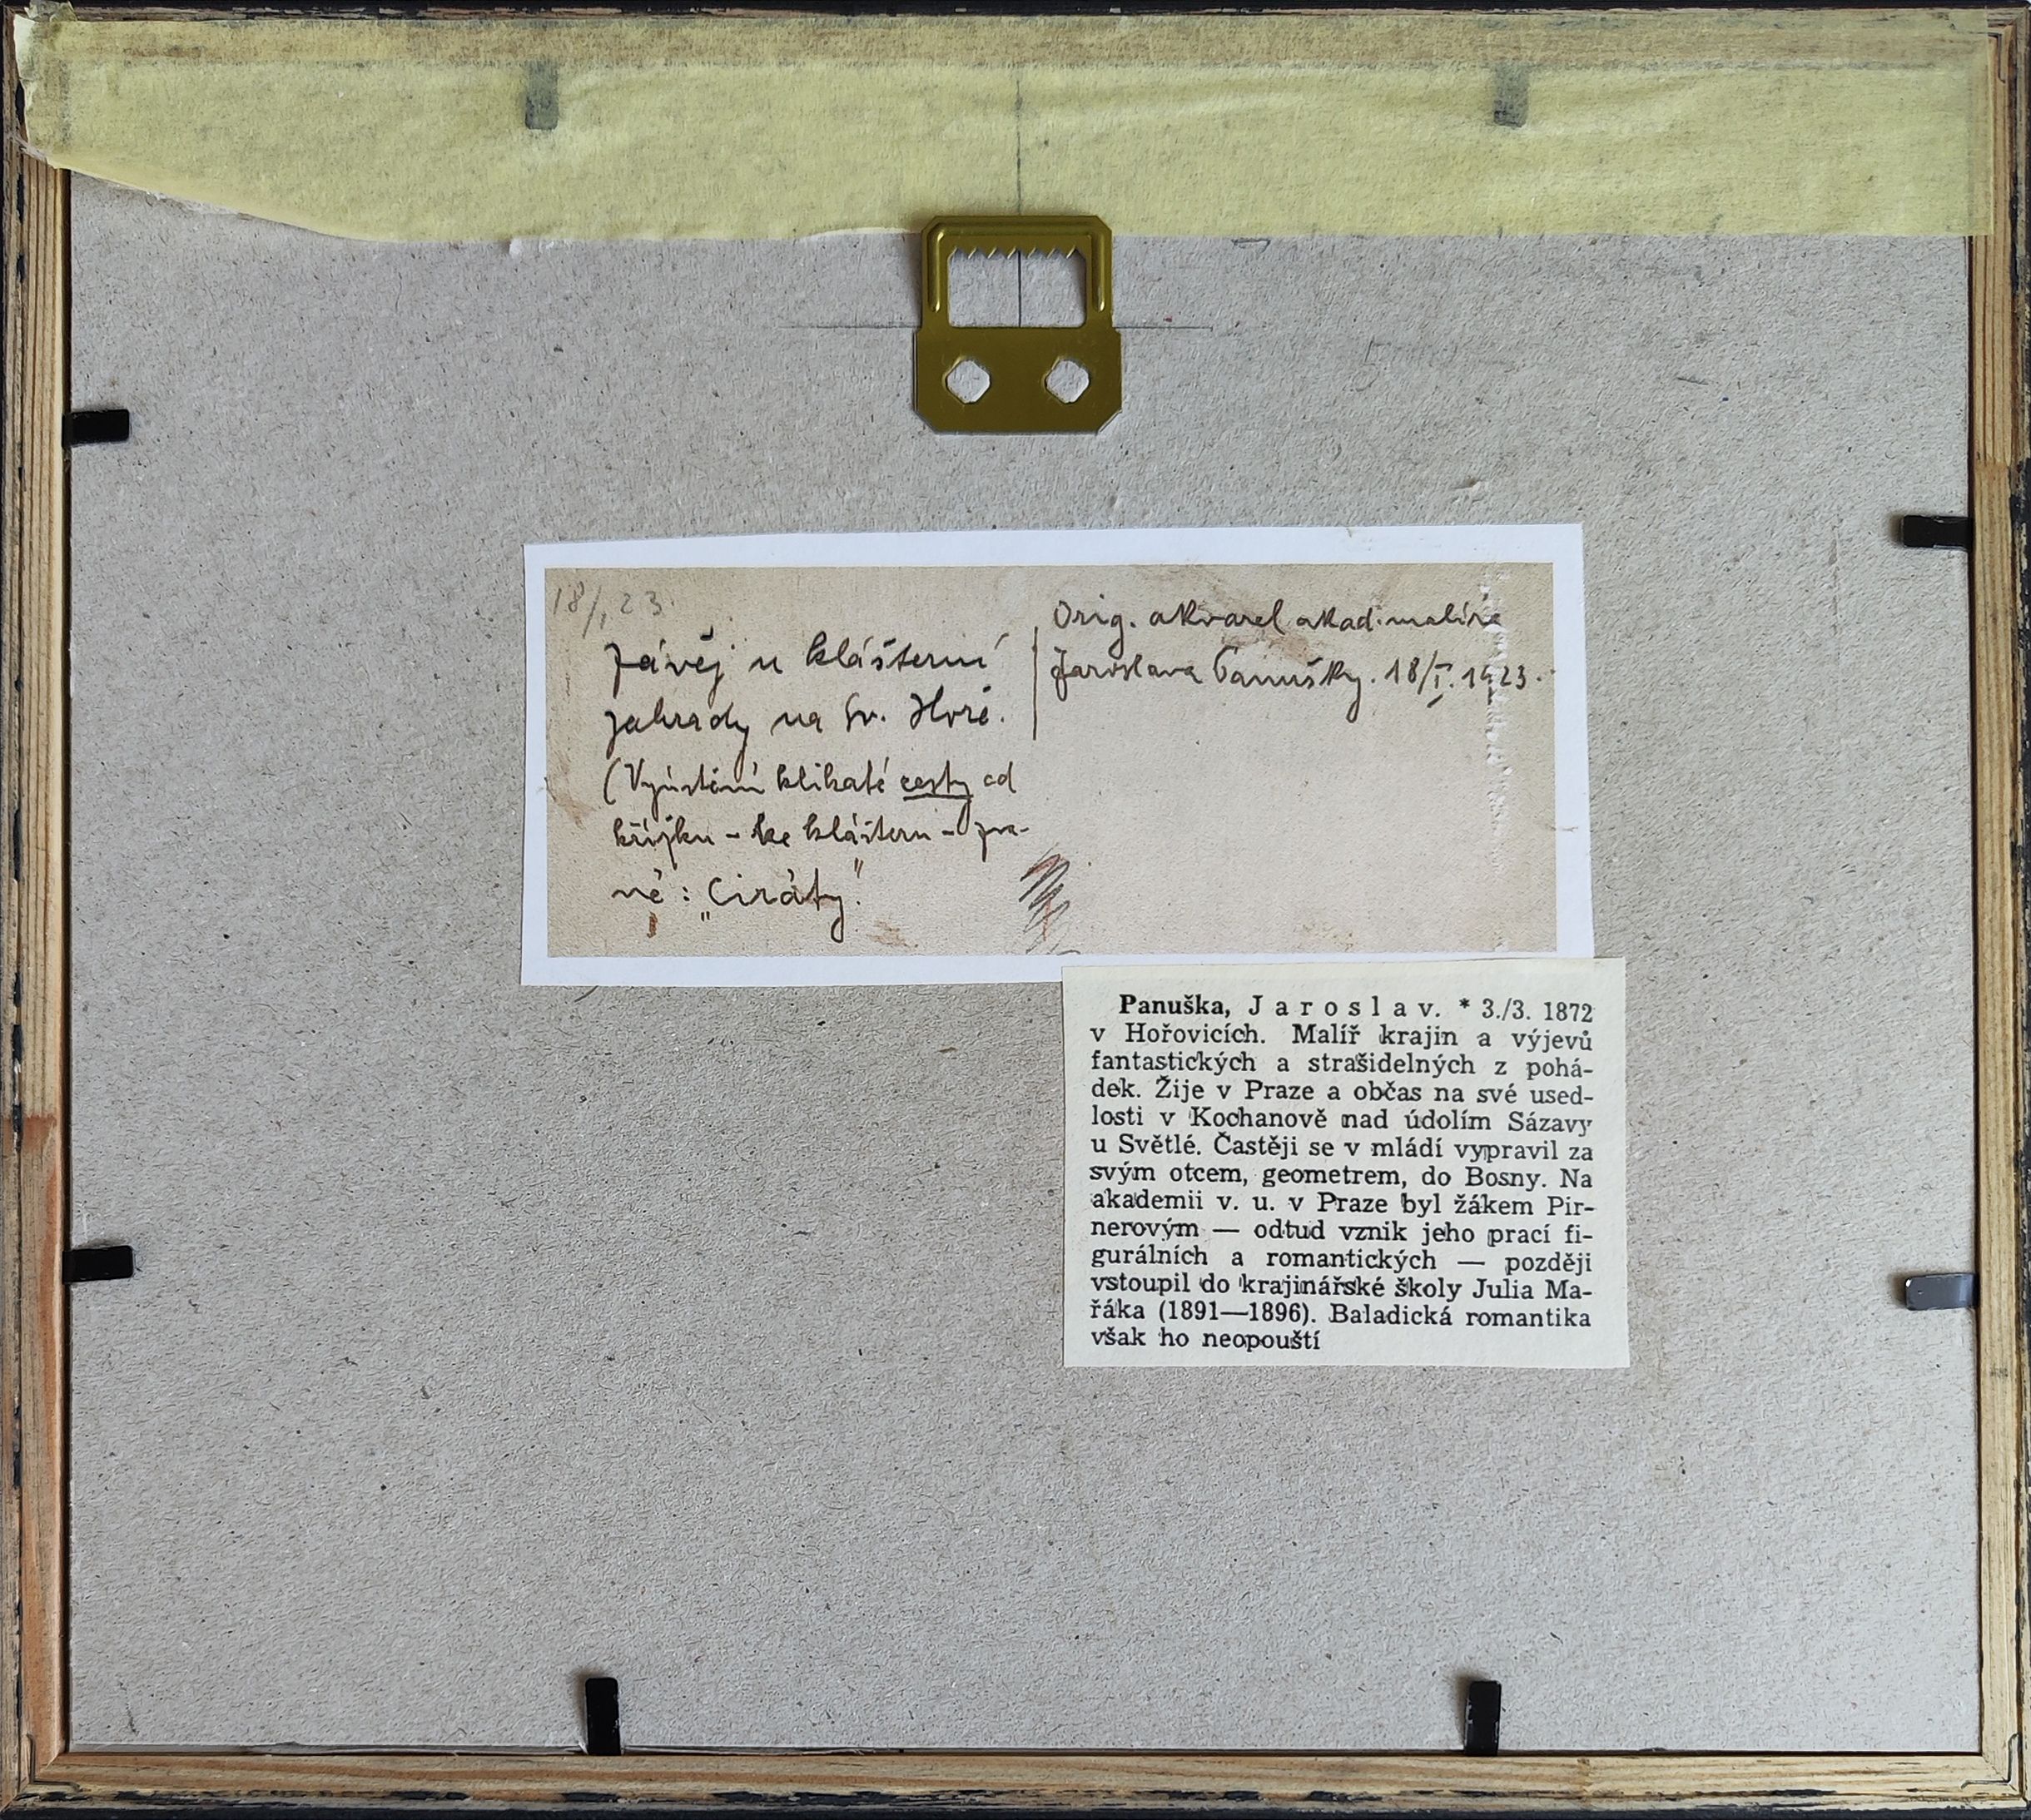 18/I 23.
Závěj u klášterní
zahrady na Sv. Hoře.
(Vyústění klikaté cesty od
křížku - ke klášteru - zva-
né: „Ciráty."
Orig. akvarel akad. malíře
Jaroslava Panušky. 18/I. 1923.
Panuška, Jaroslav. * 3./3. 1872
v Hořovicích. Malíř krajin a výjevů
fantastických a strašidelných z pohá-
dek. Žije v Praze a občas na své used-
losti v Kochanově nad údolím Sázavy
u Světlé. Častěji se v mládí vypravil za
svým otcem, geometrem, do Bosny. Na
akademii v. u. v Praze byl žákem Pir-
nerovým — odtud vznik jeho prací fi-
gurálních a romantických — později
vstoupil do krajinářské školy Julia Ma-
řáka (1891—1896). Baladická romantika
však ho neopouští